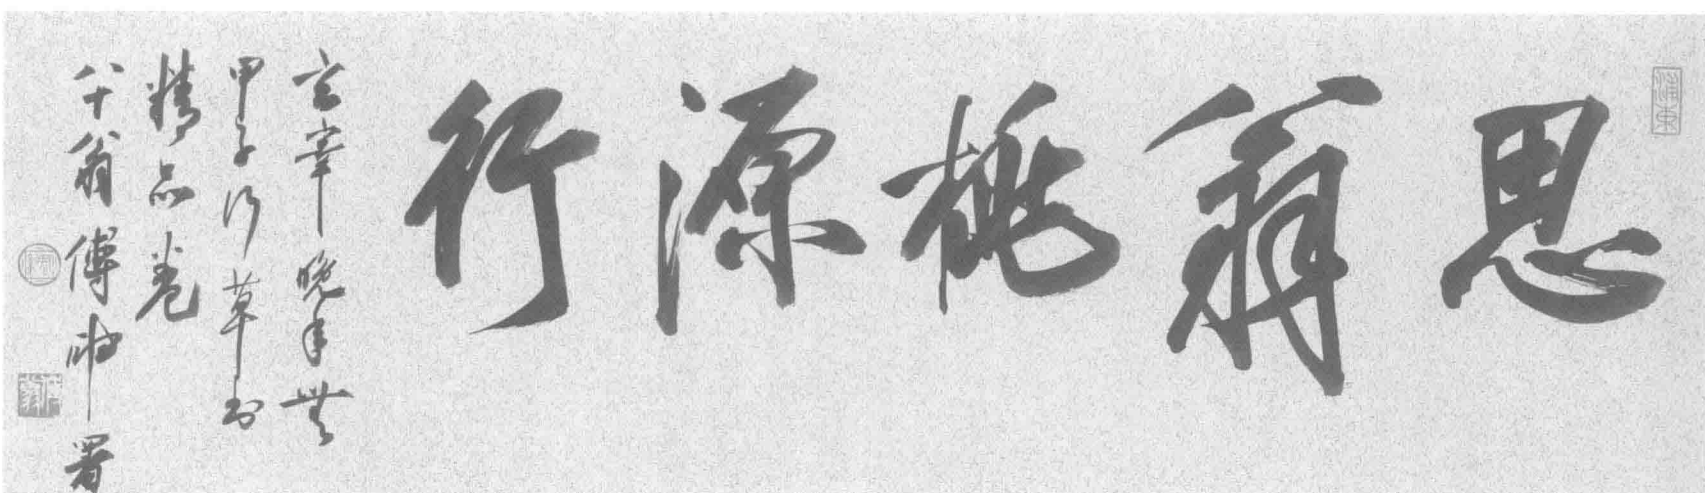 思翁桃源行
玄宰晚年無
甲子行草書
精品卷
八十翁傅申署
浦東